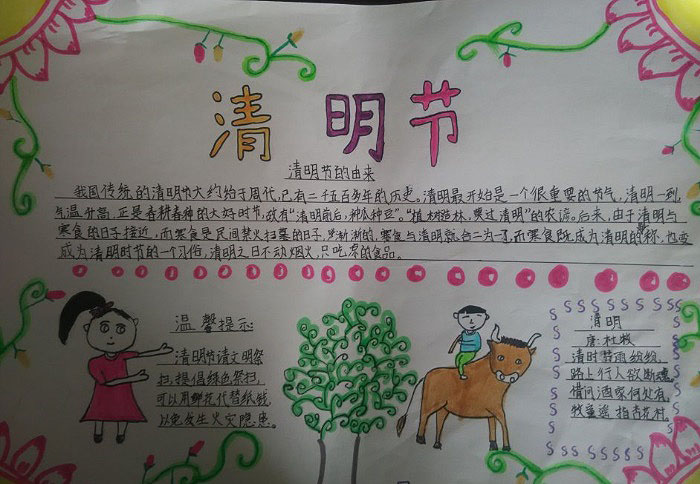 清明节
清明节的由来
我国传统的清明节大约始于周代,已有二千五百多年的历史。清明最开始是一个很重要的节气,清明一到
气温升高,正是春耕春种的大好时节,故有“清明前后,种瓜种豆”。“植树造林,莫过清明”的农谚。后来,由于清明与
寒食的日子接近,而寒食是民间禁火扫墓的日子,渐渐的,寒食与清明就合二为一了,而寒食既成为清明的别称,也变
成为清明时节的一个习俗,清明之日不动烟火,只吃凉的食品。
温馨提示
清明节请文明祭
扫,提倡绿色祭扫,
可以用鲜花代替纸钱
以免发生火灾隐患。
清明
唐:杜牧
清时节雨纷纷,
路上行人欲断魂
借问酒家何处有,
牧童遥指杏花村